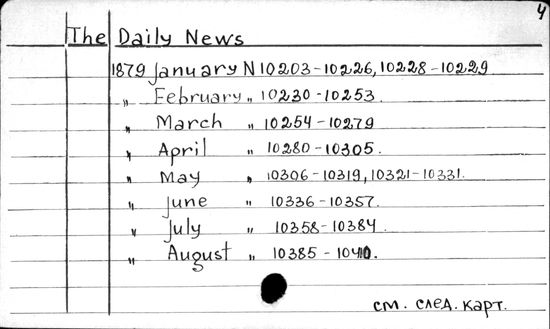 4
The Daily News
1879 January N 10203-10226, 10228-10229
" February " 10230-10253.
" March " 10254-10279
" April " 10280-10305.
" May " 10306-10319, 10321-10331.
" June " 10336-10357.
" July " 10358-10384.
" August " 10385-
см. след. карт.